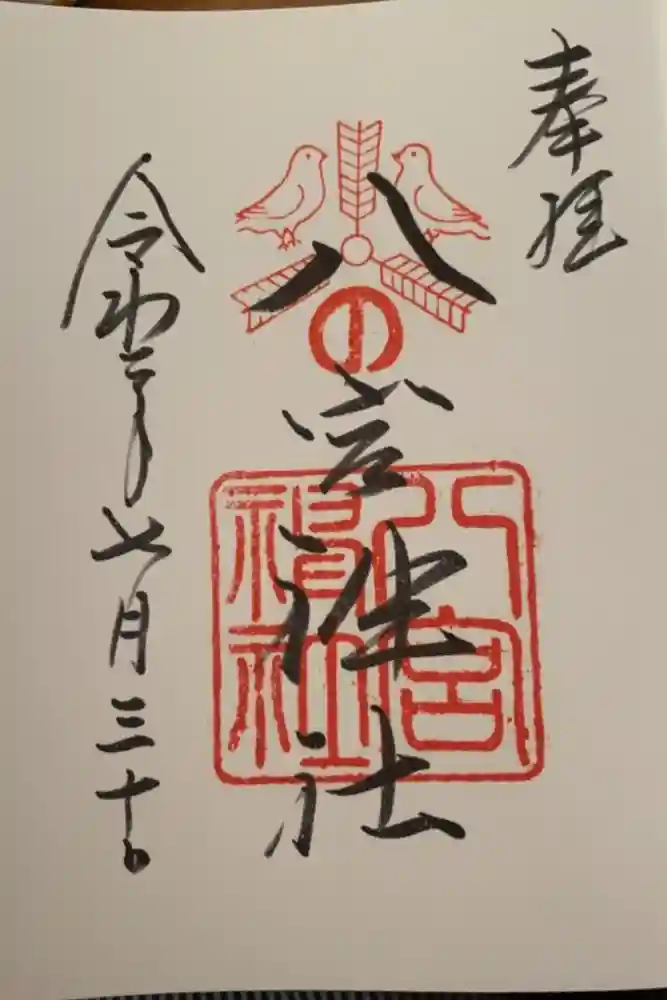 奉拝
八宮神社
八宮
神社
令和二年七月三十日